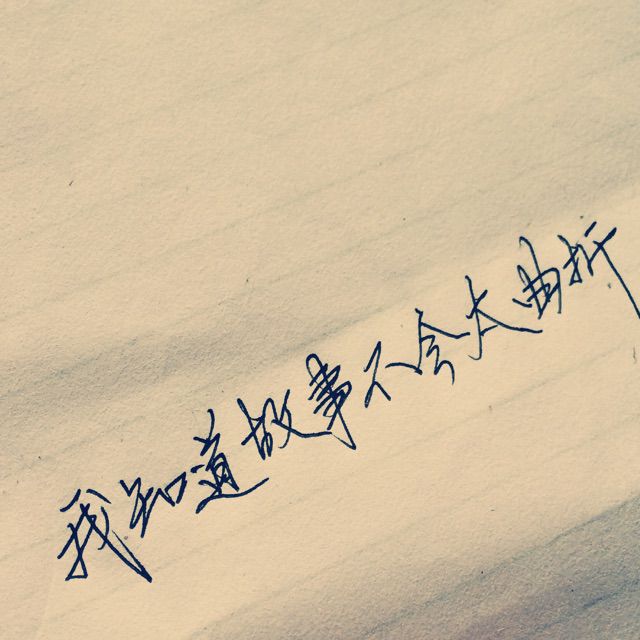 我知道故事不会太曲折